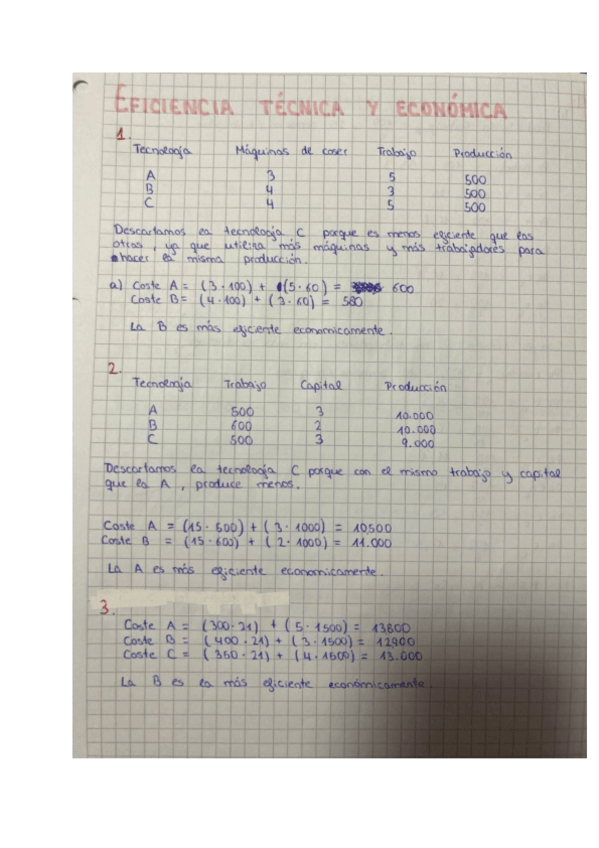 EFICIENCIA TÉCNICA Y ECONÓMICA
1.
Tecnología Máquinas de coser Trabajo Producción
A 3 5 500
B 4 3 500
C 4 5 500
Descartamos la tecnología C porque es menos eficiente que las
otras, ya que utiliza más máquinas y más trabajadores para
hacer la misma producción.
a) Coste A = (3·100) + (5·60) = 600
Coste B = (4·100) + (3·60) = 580
La B es más eficiente economicamente.
2.
Tecnología Trabajo Capital Producción
A 500 3 10.000
B 600 2 10.000
C 500 3 9.000
Descartamos la tecnología C porque con el mismo trabajo y capital
que la A, produce menos.
Coste A = (15·500) + (3·1000) = 10500
Coste B = (15·600) + (2·1000) = 11.000
La A es más eficiente economicamente.
3.
Coste A = (300·21) + (5·1500) = 13800
Coste B = (400·21) + (3·1500) = 12900
Coste C = (350·21) + (4·1500) = 13.000
La B es la más eficiente económicamente.